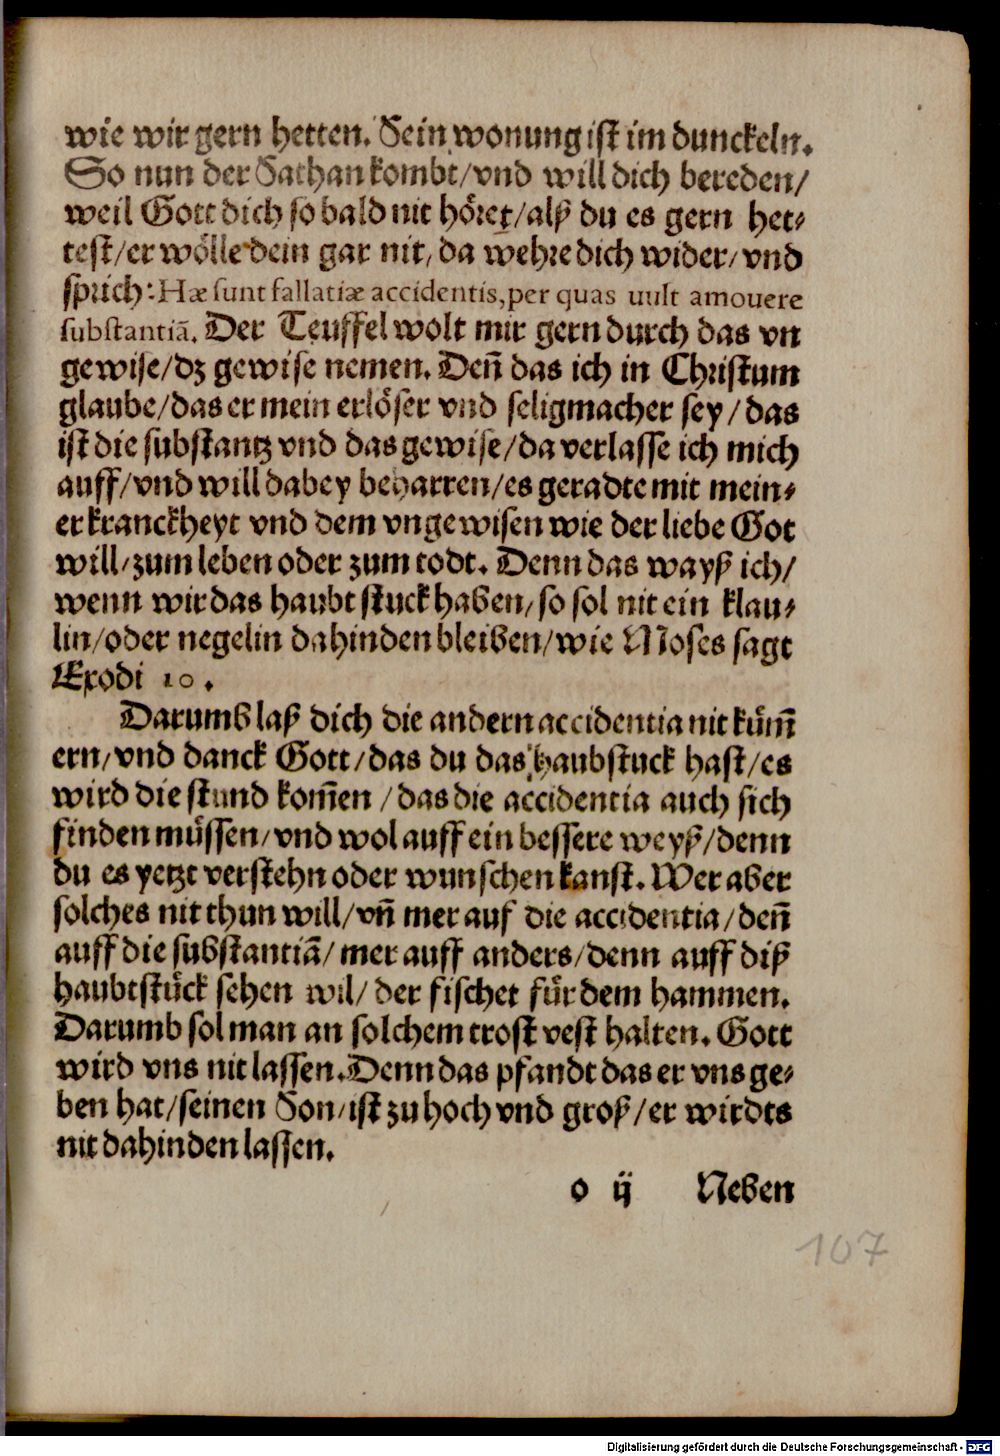 wie wir gern hetten. Sein wonung ist im dunckeln.
So nun der Sathan kombt/vnd will dich bereden/
weil Gott dich so bald nit höret/alß du es gern het-
test/er wölle dein gar nit/da wehre dich wider/vnd
sprich: Hæ sunt fallatiæ accidentis, per quas uult amouere
substantiã. Der Teuffel wolt mir gern durch das vn
gewise/dz gewise nemen. Deñ das ich in Christum
glaube/das er mein erlöser vnd seligmacher sey/das
ist die substantz vnd das gewise/da verlasse ich mich
auff/vnd will dabey beharren/es geradte mit mein-
er kranckheyt vnd dem vngewisen wie der liebe Got
will/zum leben oder zum todt. Denn das wayß ich/
wenn wir das haubt stuck haben/so sol nit ein klau-
lin/oder negelin dahinden bleiben/wie Moses sagt
Exodi 10.
Darumb laß dich die andern accidentia nit küm̃
ern/vnd danck Gott/das du das haubstuck hast/es
wird die stund kom̃en/das die accidentia auch sich
finden müssen/vnd wol auff ein bessere weyß/denn
du es yetzt verstehn oder wunschen kanst. Wer aber
solches nit thun will/vñ mer auf die accidentia/deñ
auff die substantiã/mer auff anders/denn auff diß
haubtstück sehen wil/der fischet für dem hammen.
Darumb sol man an solchem trost vest halten. Gott
wird vns nit lassen. Denn das pfandt das er vns ge-
ben hat/seinen Son/ist zu hoch vnd groß/er wirdts
nit dahinden lassen.
o ij Neben
107
Digitalisierung gefördert durch die Deutsche Forschungsgemeinschaft - DFG